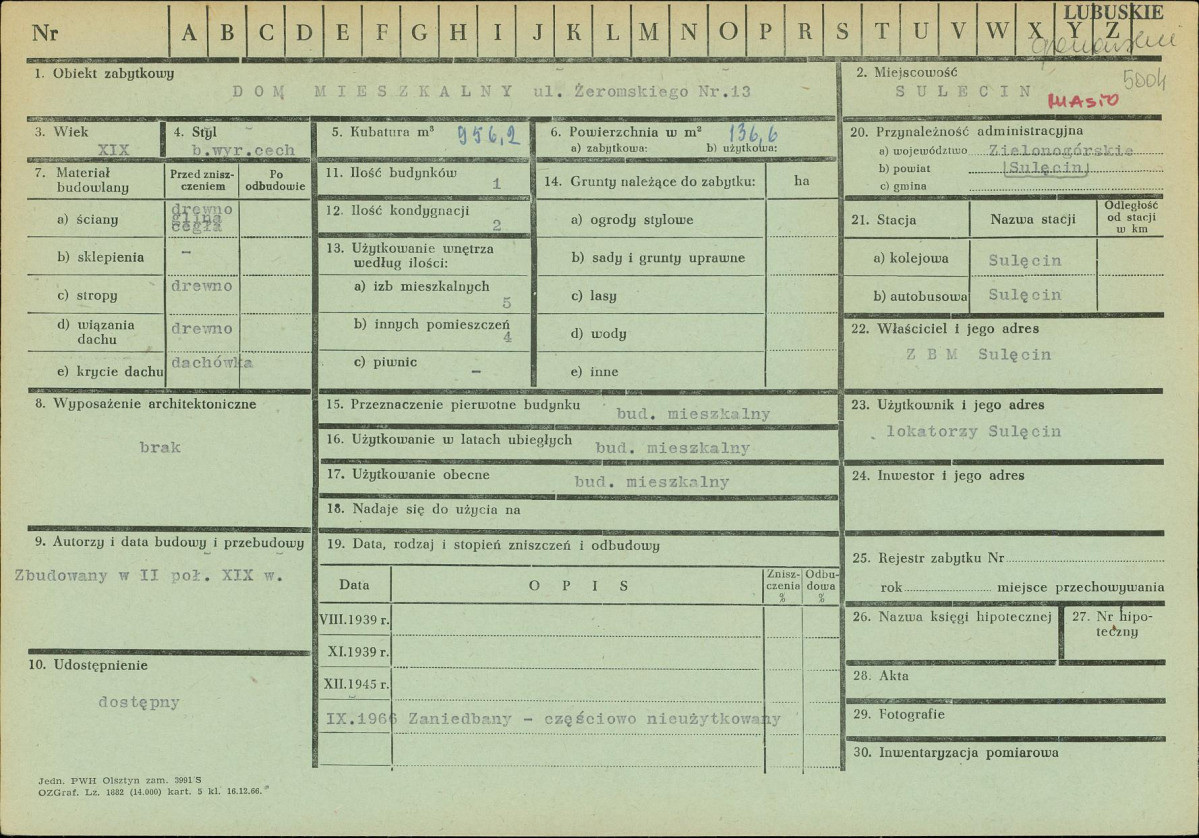 LUBUSKIE
Nr A B C D E F G H I J K L M N O P R S T U V W X Y Z
1. Obiekt zabytkowy
DOM MIESZKALNY ul. Żeromskiego Nr.13
2. Miejscowość
5004
SULĘCIN
MIASTO
3. Wiek
XIX
4. Styl
b.wyr.cech
5. Kubatura m³ 956,2
6. Powierzchnia w m² 136,6
a) zabytkowa: b) użytkowa:
7. Materiał budowlany
Przed znisz-
czeniem
Po
odbudowie
a) ściany
drewno
glina
cegła
b) sklepienia –
c) stropy drewno
d) wiązania
dachu
drewno
e) krycie dachu dachówka
8. Wyposażenie architektoniczne
brak
9. Autorzy i data budowy i przebudowy
Zbudowany w II poł. XIX w.
10. Udostępnienie
dostępny
11. Ilość budynków
1
12. Ilość kondygnacji
2
13. Użytkowanie wnętrza
według ilości:
a) izb mieszkalnych
5
b) innych pomieszczeń
4
c) piwnic
–
14. Grunty należące do zabytku: ha
a) ogrody stylowe
b) sady i grunty uprawne
c) lasy
d) wody
e) inne
15. Przeznaczenie pierwotne budynku bud. mieszkalny
16. Użytkowanie w latach ubiegłych bud. mieszkalny
17. Użytkowanie obecne bud. mieszkalny
18. Nadaje się do użycia na
19. Data, rodzaj i stopień zniszczeń i odbudowy
Data OPIS
Znisz-
czenia
%
Odbu-
dowa
%
VIII.1939 r.
XI.1939 r.
XII.1945 r.
IX.1966 Zaniedbany – częściowo nieużytkowany
20. Przynależność administracyjna
a) województwo Zielonogórskie
b) powiat Sulęcin
c) gmina
21. Stacja Nazwa stacji
Odległość
od stacji
w km
a) kolejowa Sulęcin
b) autobusowa Sulęcin
22. Właściciel i jego adres
Z B M Sulęcin
23. Użytkownik i jego adres
lokatorzy Sulęcin
24. Inwestor i jego adres
25. Rejestr zabytku Nr
rok miejsce przechowywania
26. Nazwa księgi hipotecznej
27. Nr hipo-
teczny
28. Akta
29. Fotografie
30. Inwentaryzacja pomiarowa
Jedn. PWH Olsztyn zam. 3991 S
OZGraf. Lz. 1882 (14.000) kart. 5 kl. 16.12.66.